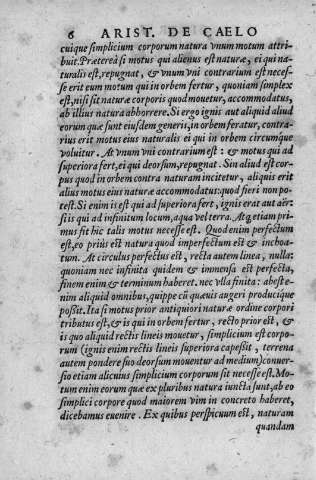 6 ARIST. DE CAELO
cuique simplicium corporum natura vnum motum attri-
buit. Prætereà si motus qui alienus est naturæ, ei qui na-
turalis est, repugnat, & vnum vni contrarium est neces-
se erit eum motum qui in orbem fertur, quoniam simplex
est, nisi sit naturæ corporis quod mouetur, accommodatus,
ab illius natura abhorrere. Si ergo ignis aut aliquid aliud
eorum quæ sunt eiusdem generis, in orbem feratur, contra-
rius erit motus eius naturalis ei qui in orbem circumque
voluitur. At vnum vni contrarium est: & motus qui ad
superiora fert, ei qui deorsum, repugnat. Sin aliud est cor-
pus quod in orbem contra naturam incitetur, aliquis erit
alius motus eius naturæ accommodatus: quod fieri non po-
test. Si enim is est qui ad superiora fert, ignis erat aut aër:
si is qui ad infinitum locum, aqua vel terra. At etiam pri-
mus fit hic talis motus necesse est. Quod enim perfectum
est, eo prius est natura quod imperfectum est & inchoa-
tum. At circulus perfectus est, recta autem linea, nulla:
quoniam nec infinita quidem & immensa est perfecta,
finem enim & terminum haberet. nec vlla finita: abest e-
nim aliquid omnibus, quippe cù quæuis augeri producique
possit. Ita si motus prior antiquiori naturæ ordine corpori
tributus est, & is qui in orbem fertur, recto prior est, &
is quo aliquid rectis lineis mouetur, simplicium est corpo-
rum (ignis enim rectis lineis superiora capessit, terrena
autem pondere suo deorsum mouentur ad medium) conuer-
sio etiam alicuius simplicium corporum sit necesse est. Mo-
tum enim eorum quæ ex pluribus natura iuncta sunt, ab eo
simplici corpore quod maiorem vim in concreto haberet,
dicebamus euenire. Ex quibus perspicuum est, naturam
quandam